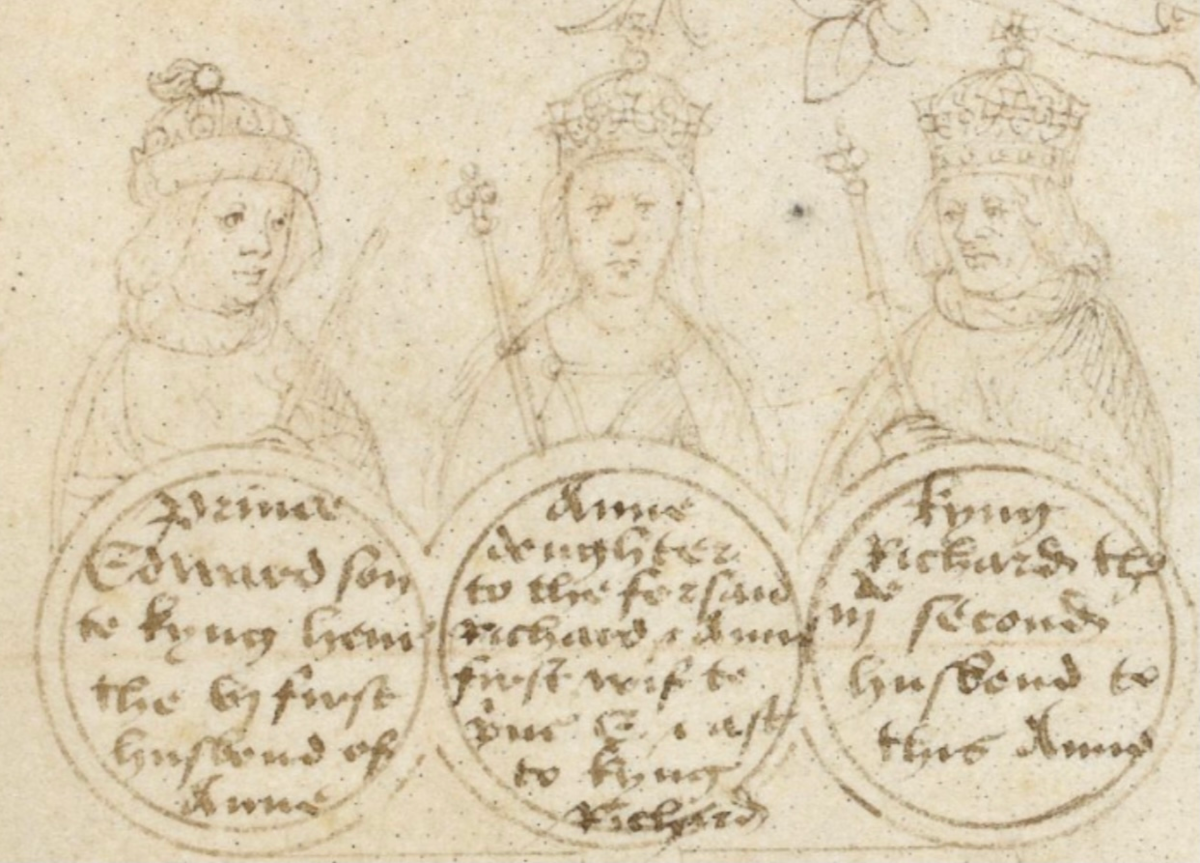 Prince
Edward son
to kyng Henr
the vj first
husbend of
Anne
Anne
doughter
to the forsaid
Richard & Anne
first wif to
& aft
to kyng
Richard
kyng
Richard the
iij de second
husbend to
this Anne